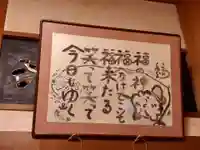 福の神
福
福来たる
笑って笑って
今日もゆく